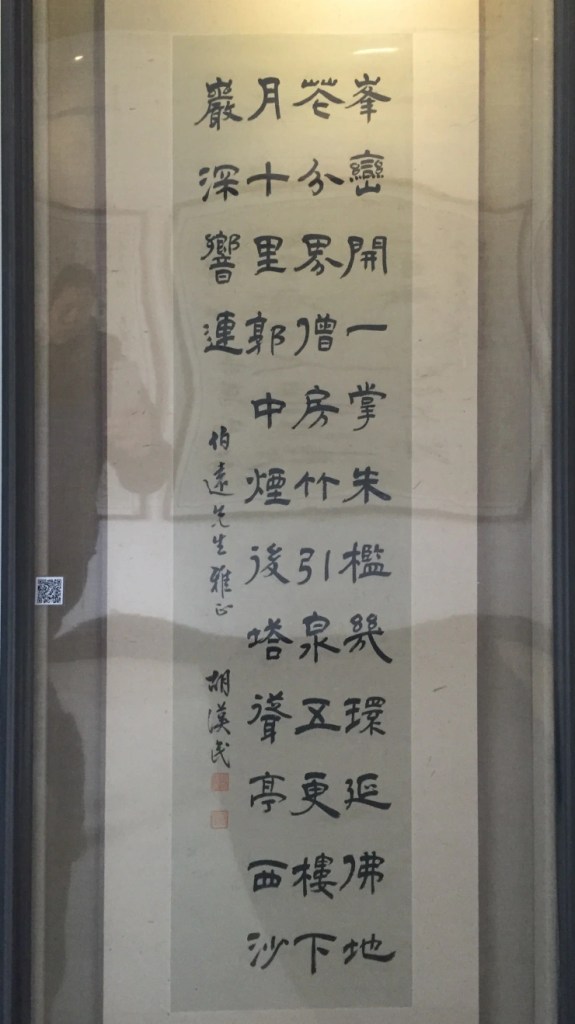 峯巒開一掌朱檻幾環延佛地
花分界僧房竹引泉五更樓下
月十里郭中煙後塔聳亭西沙
巖深響連
伯遠先生雅正
胡漢民